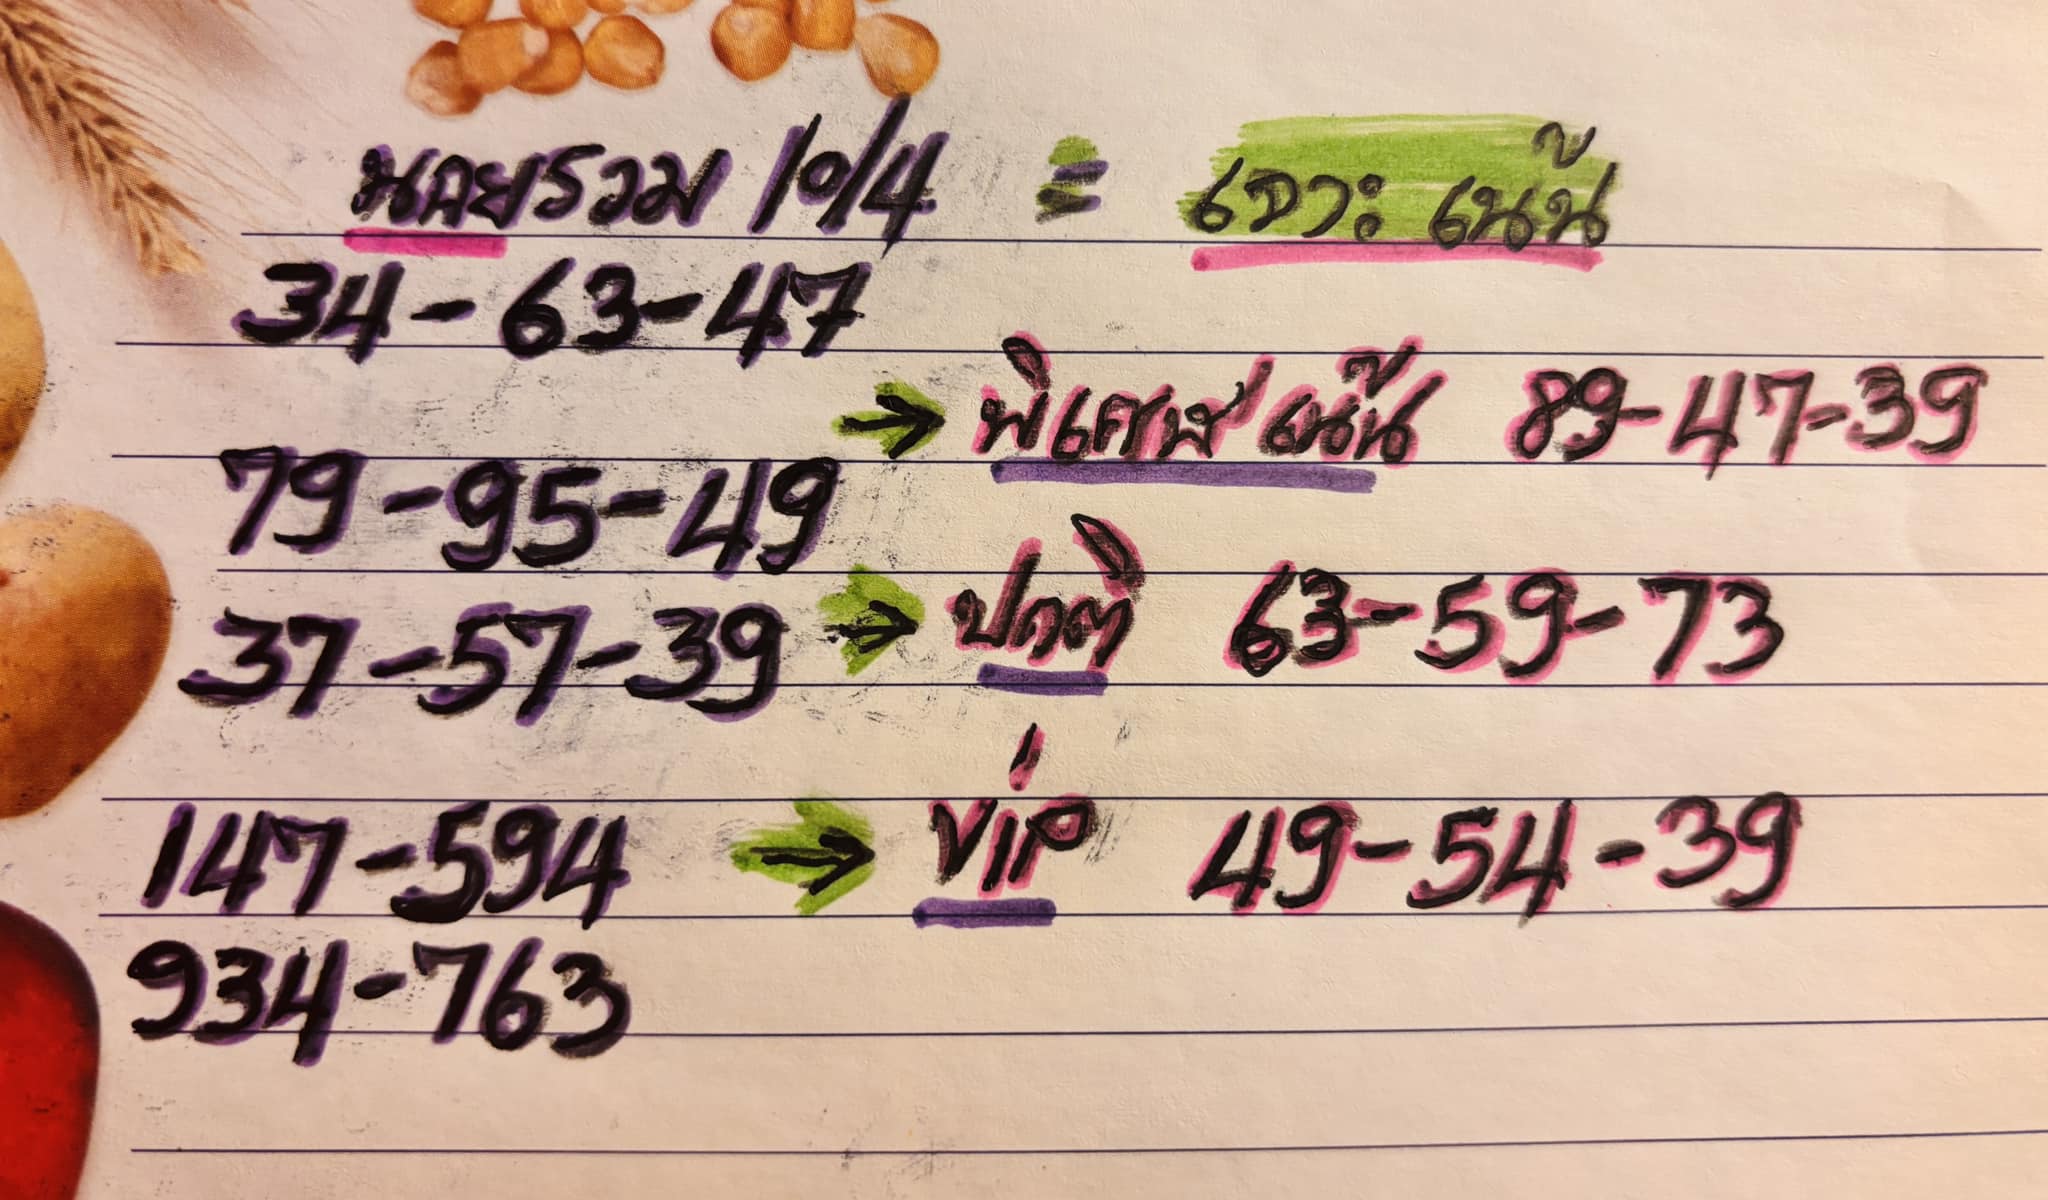 นอยรวม 10/4 = เจาะ เน้น
34-63-47
→ พิเศษ เน้น 89-47-39
79-95-49
37-57-39 → ปกติ 63-59-73
147-594 → Vip 49-54-39
934-763